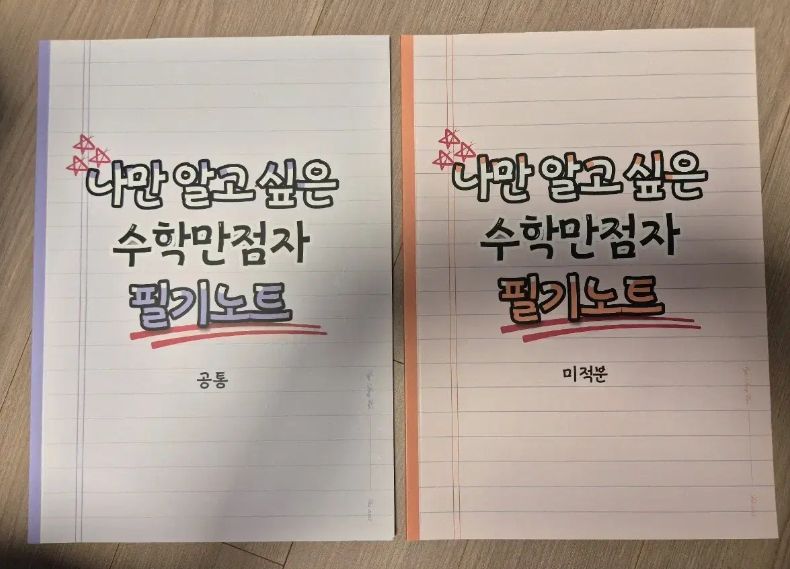 나만 알고 싶은
수학만점자
필기노트
공통
나만 알고 싶은
수학만점자
필기노트
미적분